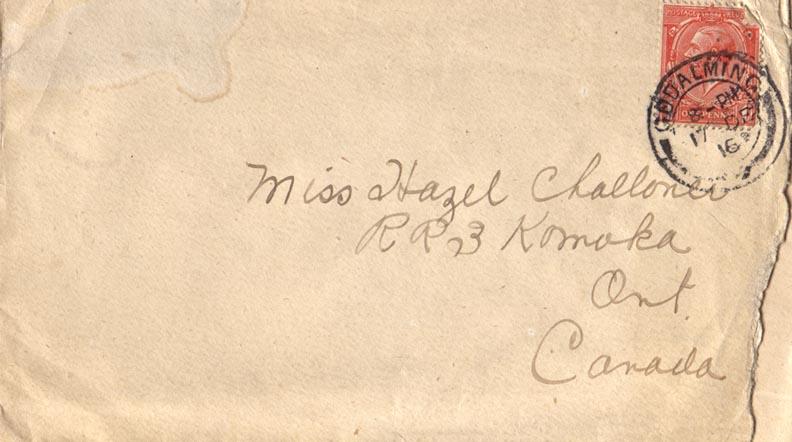 POSTAGE
ONE PENNY
GODALMING
8 - PM
17 OC
16
Miss Hazel Challoner
RR3 Komoka
Ont.
Canada